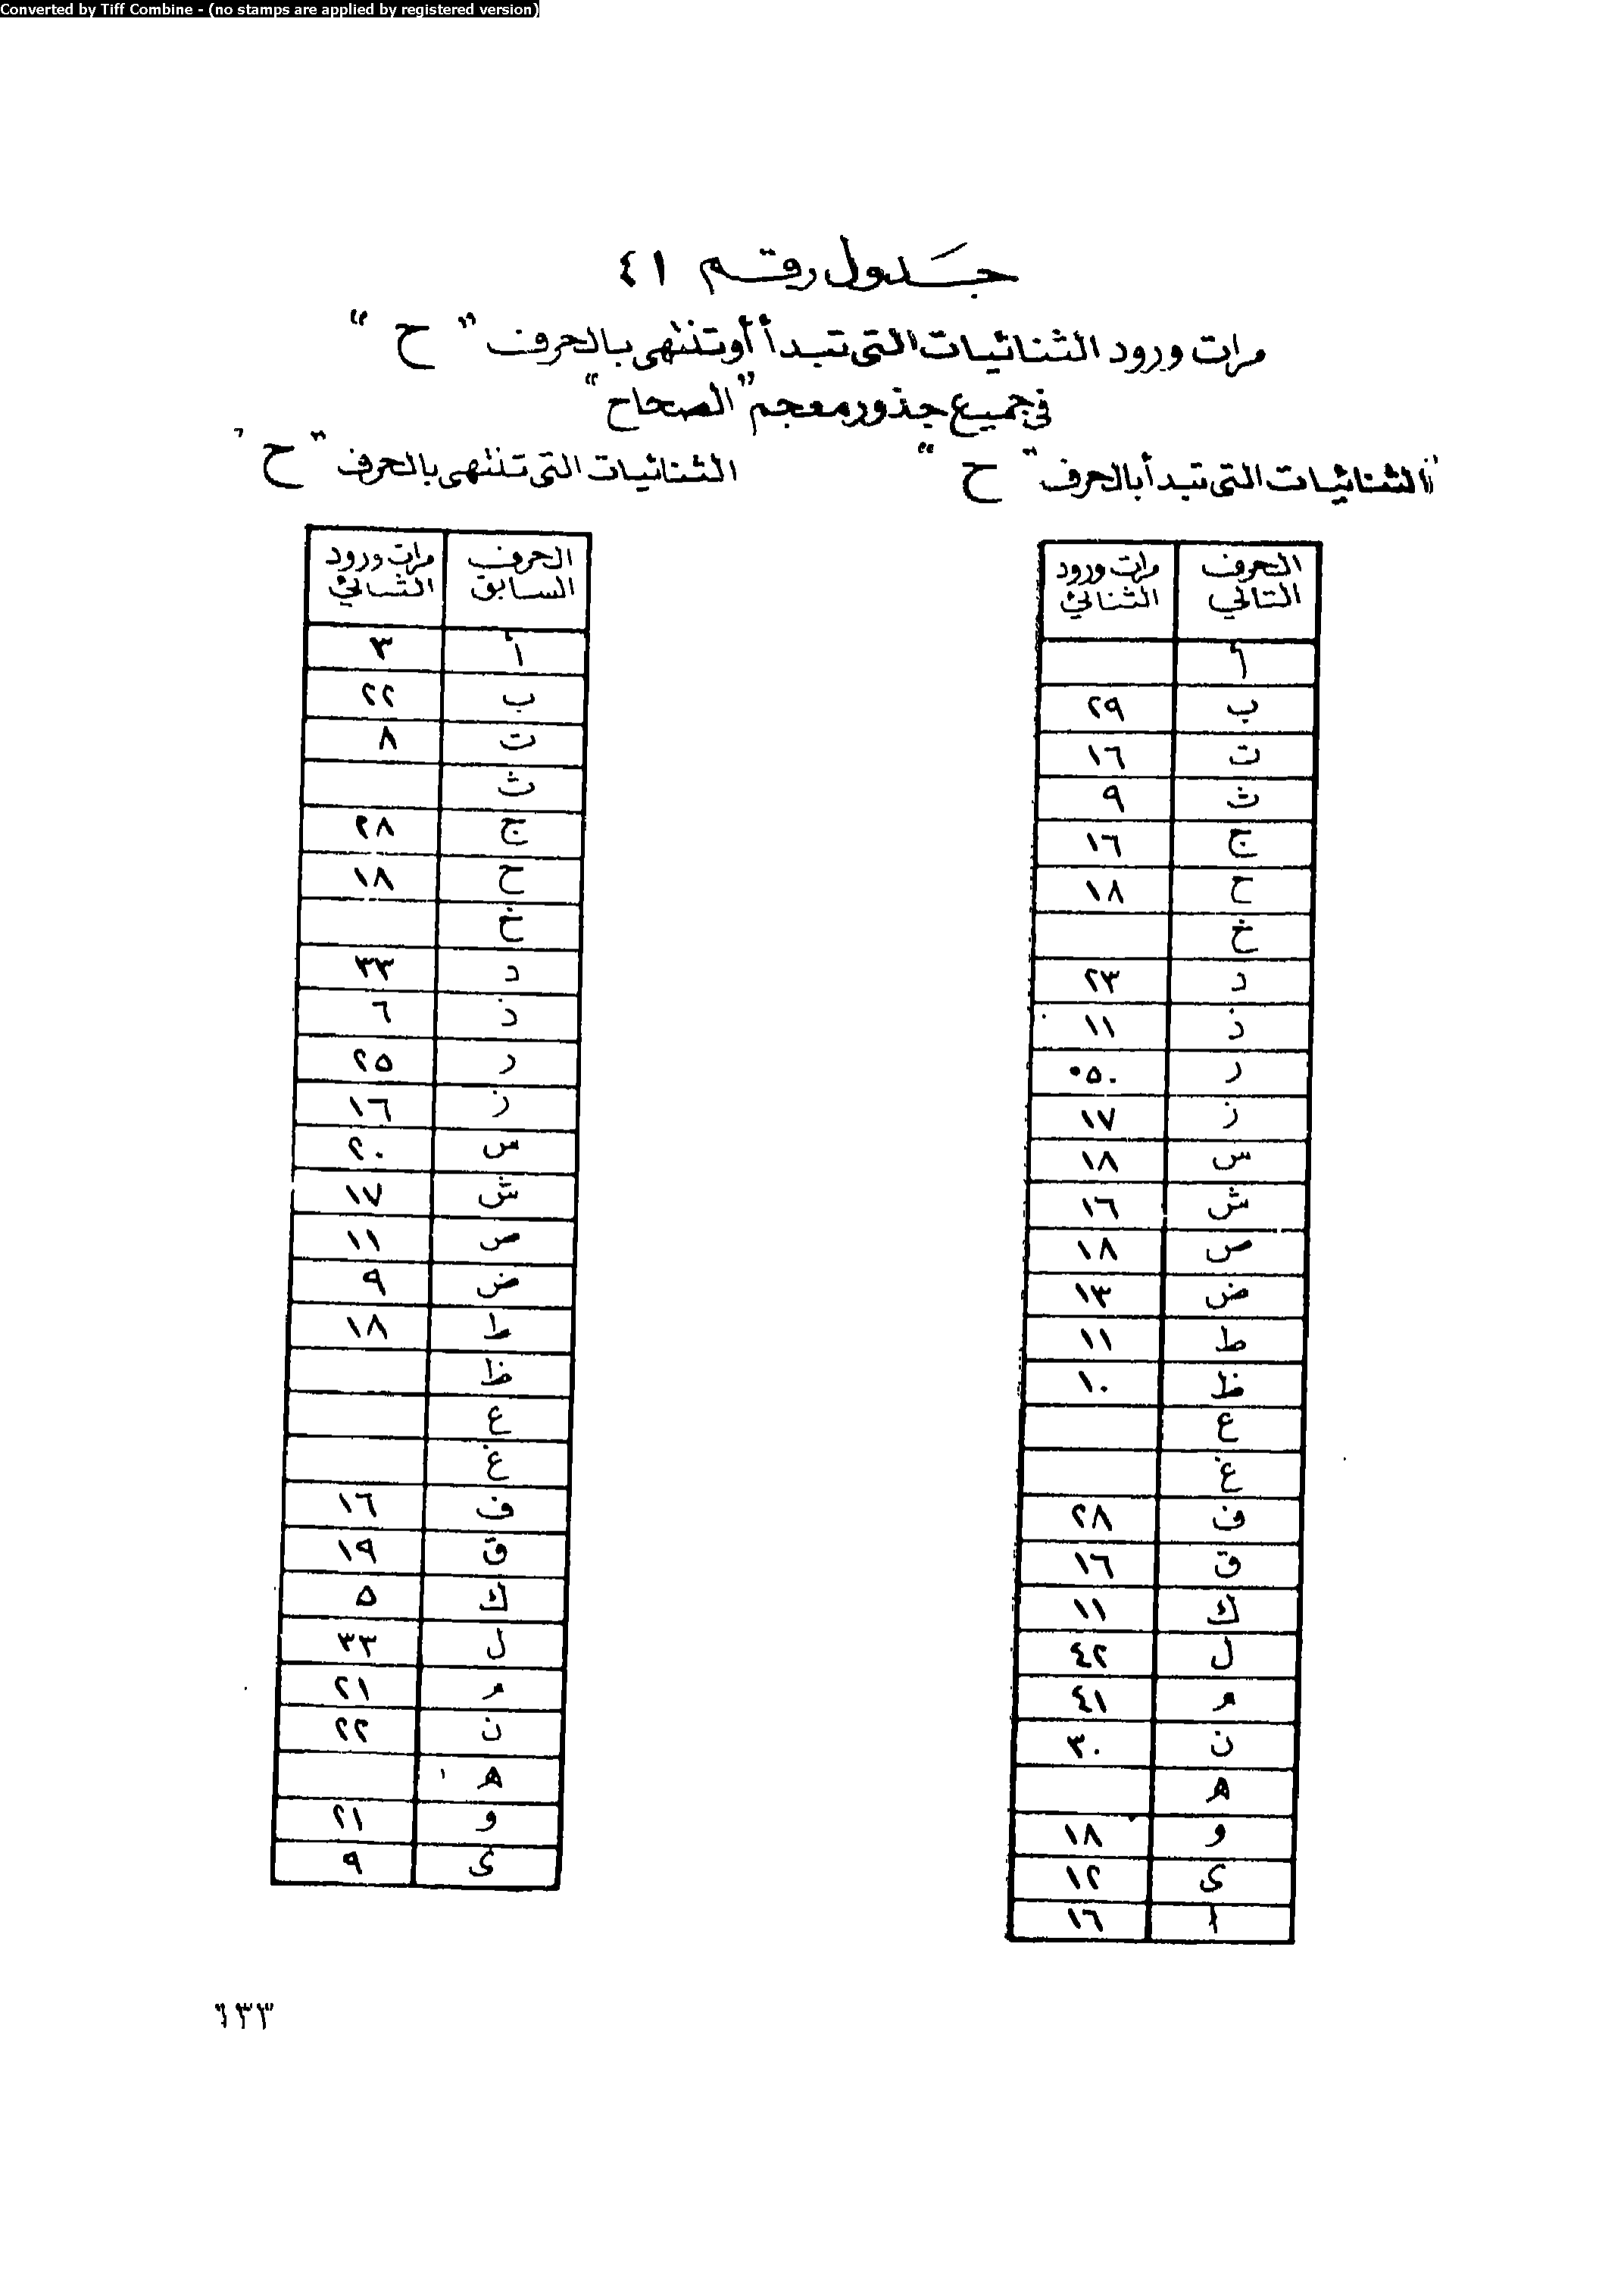 Converted by Tiff Combine - (no stamps are applied by registered version)
جَدول رقم ٤١
مرات ورود الثنائيات التى تبدأ أو تنتهى بالحرف " ح "
فى جميع جذور معجم "الصحاح"
الثنائيات التى تبدأ بالحرف " ح "
الحرف التالي مرات ورود الثنائي
أ
ب ٢٩
ت ١٦
ث ٩
ج ١٦
ح ١٨
خ
د ٢٣
ذ ١١
ر ٥٠
ز ١٧
س ١٨
ش ١٦
ص ١٨
ض ١٣
ط ١١
ظ ١٠
ع
غ
ف ٢٨
ق ١٦
ك ١١
ل ٤٢
م ٤١
ن ٣٠
ه
و ١٨
ى ١٢
ا ١٦
الثنائيات التى تنتهى بالحرف " ح "
الحرف السابق مرات ورود الثنائي
أ ٣
ب ٢٢
ت ٨
ث
ج ٢٨
ح ١٨
خ
د ٣٣
ذ ٦
ر ٢٥
ز ١٦
س ٢٠
ش ١٧
ص ١١
ض ٩
ط ١٨
ظ
ع
غ
ف ١٦
ق ١٩
ك ٥
ل ٣٣
م ٢١
ن ٢٢
ه
و ٢١
ى ٩
٦٣٣